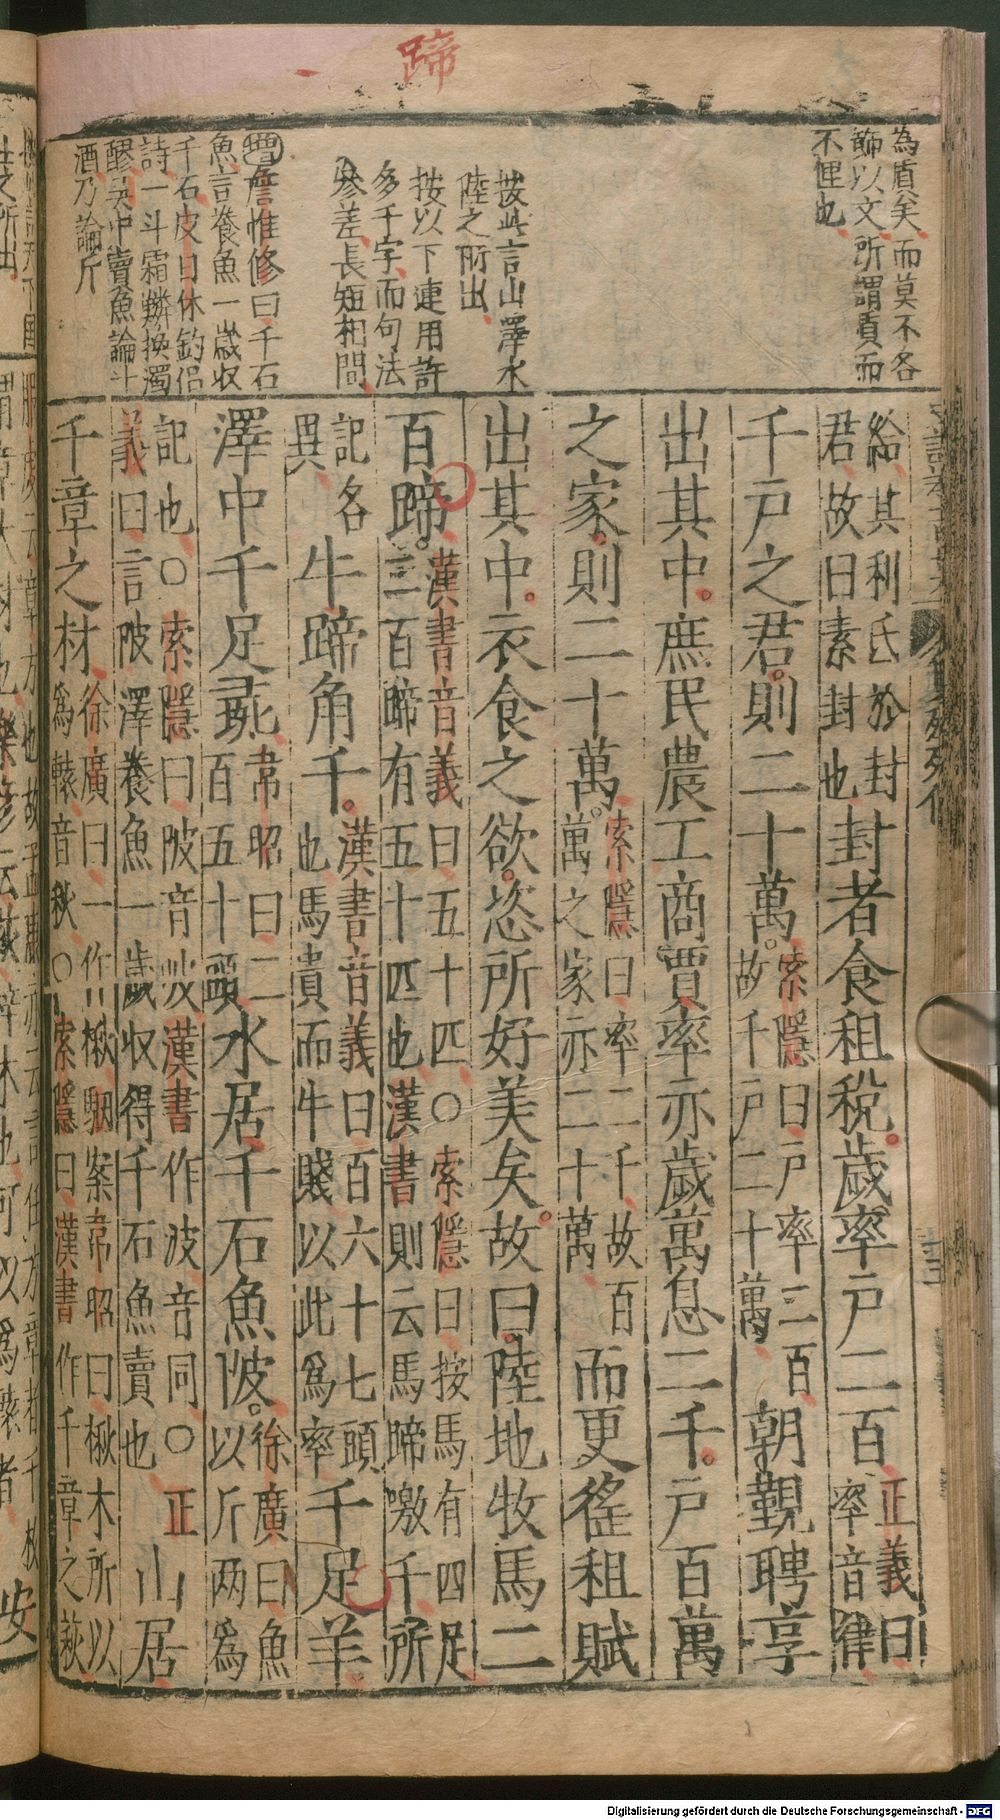 蹄
為眞矣而莫不各
飾以文所謂質而
不俚也
按此言山澤水
陸之所出
按以下連用許
多千字而句法
參差長短相間
曾詹惟修曰千石
魚言養魚一歲收
千石皮日休釣侶
詩一斗霜鱗換濁
醪吳中賣魚論斗
酒乃論斤
給其利氏於封封
君故曰素封也封者食租稅。歲率戶二百正義曰
率音律
千戶之君。則二十萬。索隱曰戶率二百
故千戶二十萬朝覲聘享
出其中。庶民農工商賈率亦歲萬息二千。戶百萬
之家。則二十萬。索隱曰率二千故百
萬之家亦二十萬而更徭租賦
出其中。衣食之欲。恣所好美矣。故曰。陸地牧馬二
百蹄。漢書音義曰五十匹○索隱曰按馬有四足
二百蹄有五十匹也漢書則云馬蹄噭千所
記各
異牛蹄角千。漢書音義曰百六十七頭
也馬貴而牛賤以此爲率千足羊
澤中千足彘韋昭曰二
百五十頭水居千石魚陂。徐廣曰魚
以斤两爲
記也○索隱曰陂音詖漢書作波音同○正
義曰言陂澤養魚一歲收得千石魚賣也山居
千章之材徐廣曰一作楸駰案韋昭曰楸木所以
爲轅音秋○索隱曰漢書作千章之萩
Digitalisierung gefördert durch die Deutsche Forschungsgemeinschaft - DFG